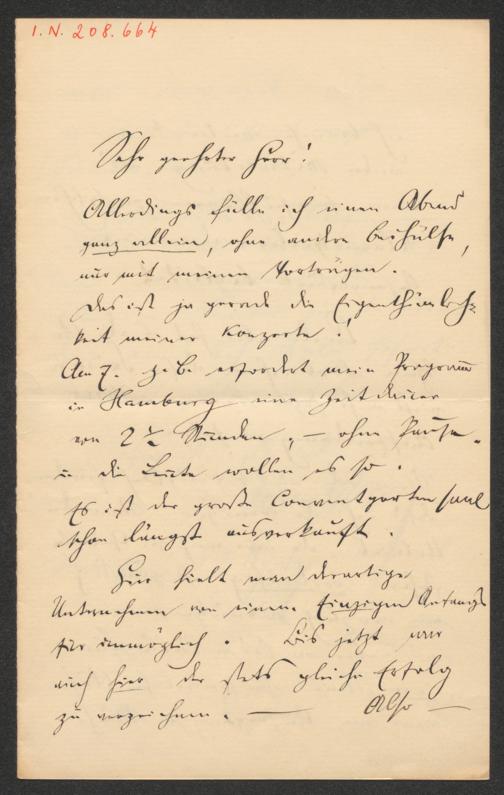 I.N. 208.664
Sehr geehrter Herr!
Allerdings fülle ich einen Abend
ganz allein, ohne andere Beihülfe,
nur mit meinen Vorträgen.
Das ist ja gerade die Eigenthümlich-
keit meiner Konzerte.
Am 7. z. B. erfordert mein Programm
in Hamburg eine Zeitdauer
von 2½ Stunden, – ohne Pause.
u die Leute wollen es so.
Es ist der große Conventgarten Saal
schon längst ausverkauft.
Hier hielt man derartige
Unternehmen von einem Einzigen Anfangs
für unmöglich. Bis jetzt war
auch hier der stets gleiche Erfolg
zu verzeichnen. — Also —